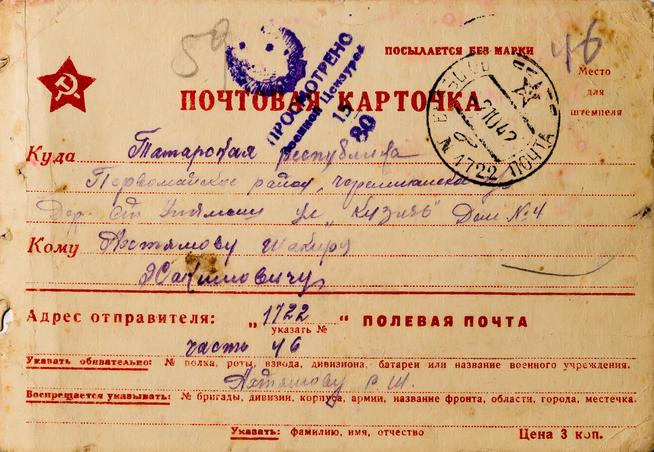 59
ПОСЫЛАЕТСЯ БЕЗ МАРКИ
46
Место
для
штемпеля
ПРОСМОТРЕНО
Военной Цензурой
15
80
ПОЧТОВАЯ КАРТОЧКА
42
№ 1722 ПОЧТА
Куда Татарская республика
Первомайское район,
Дер. Ст. ул. "Кузичь" Дом № 4
Кому Ахтямову Шакиру
Хакимовичу
Адрес отправителя: „1722“ ПОЛЕВАЯ ПОЧТА
указать №
часть 46
Указать обязательно: № полка, роты, взвода, дивизиона, батареи или название военного учреждения.
Ахтямову С Ш.
Воспрещается указывать: № бригады, дивизии, корпуса, армии, название фронта, области, города, местечка.
Указать: фамилию, имя, отчество
Цена 3 коп.